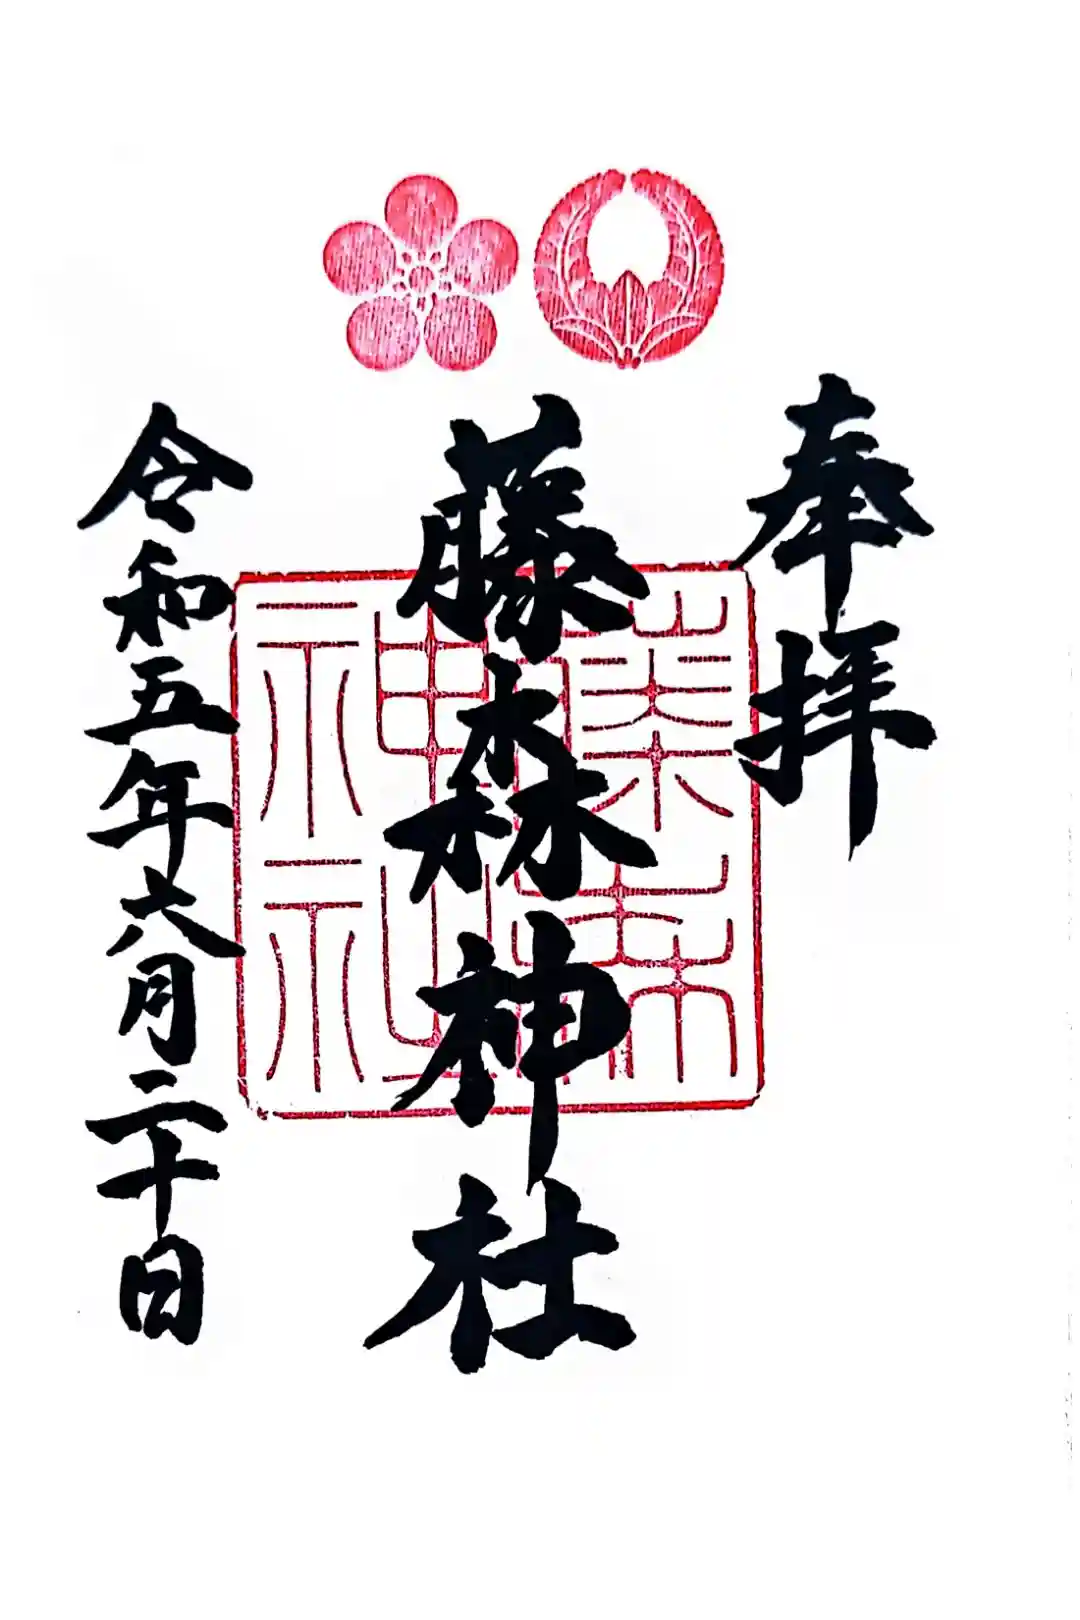 奉拝
藤森神社
藤森神社
令和五年六月二十日